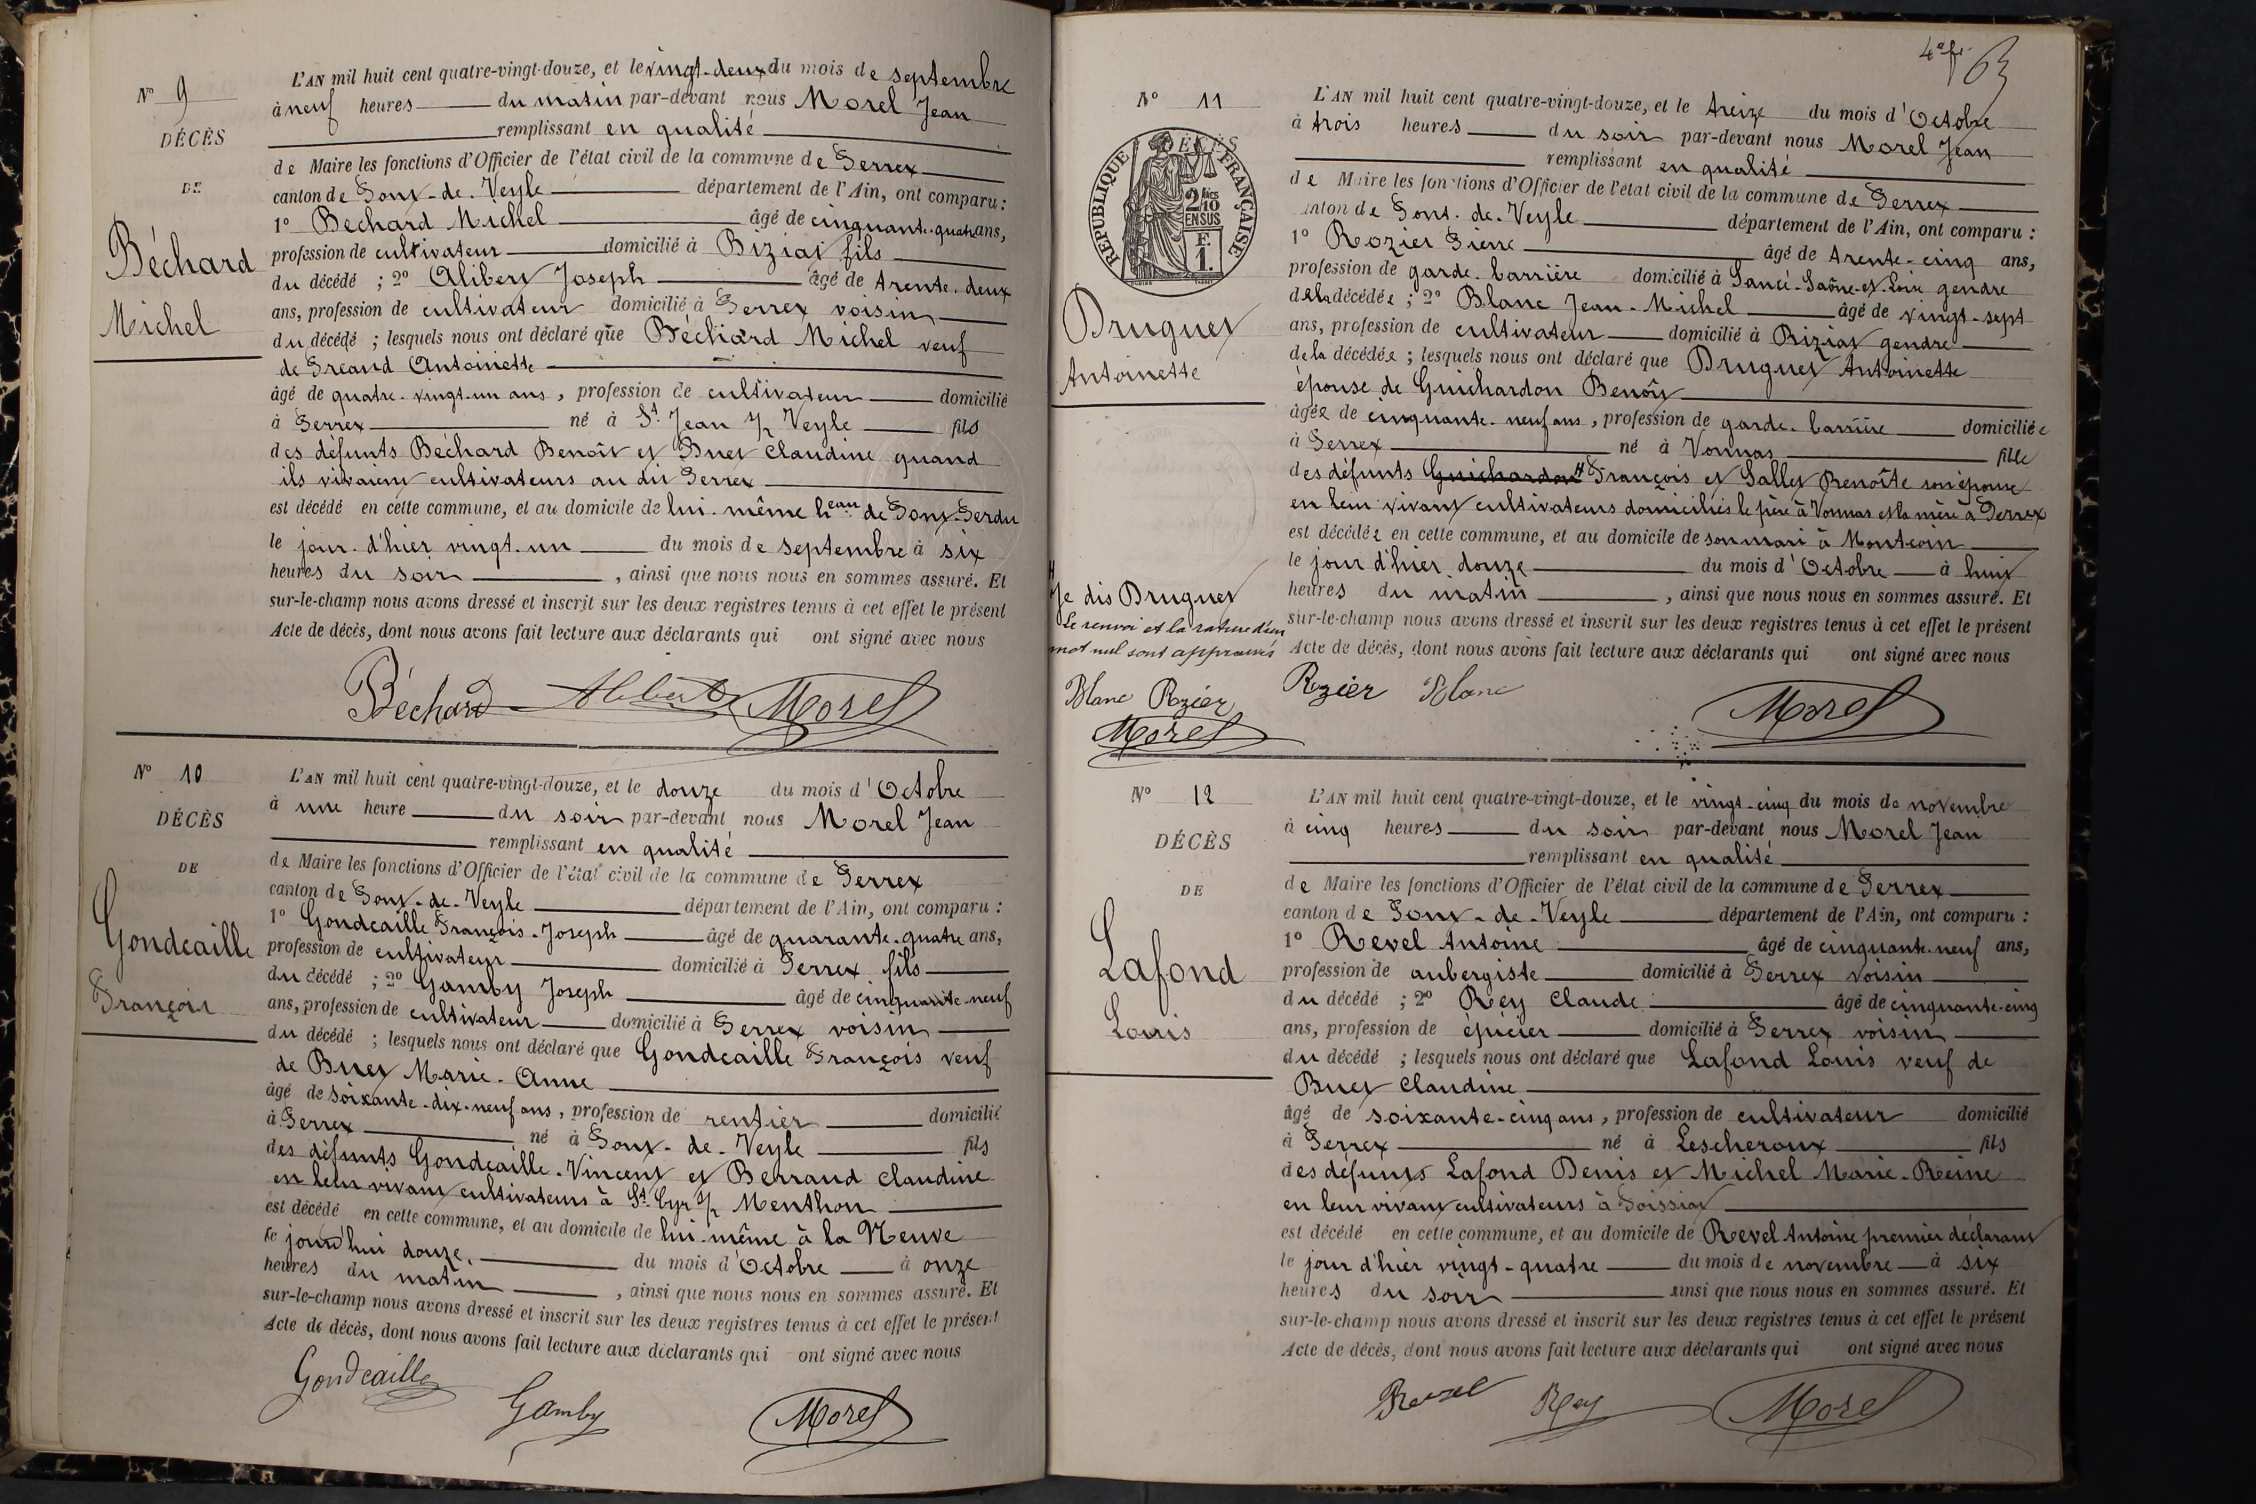 N° 9
DÉCÈS
DE
Béchard
Michel
L'AN mil huit cent quatre-vingt-douze, et le vingt-deux du mois de septembre
à neuf heures du matin par-devant nous Morel Jean
remplissant en qualité
de Maire les fonctions d'Officier de l'état civil de la commune de Perrex
canton de Pont-de-Veyle département de l'Ain, ont comparu :
1° Bechard Michel âgé de cinquante-quatre ans,
profession de cultivateur domicilié à Biziat fils
du décédé ; 2° Alibert Joseph âgé de trente-deux
ans, profession de cultivateur domicilié à Perrex voisin
du décédé ; lesquels nous ont déclaré que Béchard Michel veuf
de Greand Antoinette
âgé de quatre-vingt-un ans, profession de cultivateur domicilié
à Perrex né à St Jean s/ Veyle fils
des défunts Béchard Benoît et Buet Claudine quand
ils vivaient cultivateurs au dit Perrex
est décédé en cette commune, et au domicile de lui-même heau de Pont-Perdu
le jour d'hier vingt-un du mois de septembre à six
heures du soir , ainsi que nous nous en sommes assuré. Et
sur-le-champ nous avons dressé et inscrit sur les deux registres tenus à cet effet le présent
Acte de décès, dont nous avons fait lecture aux déclarants qui ont signé avec nous
Béchard Alibert Morel
N° 10
DÉCÈS
DE
Gondcaille
François
L'AN mil huit cent quatre-vingt-douze, et le douze du mois d'Octobre
à une heure du soir par-devant nous Morel Jean
remplissant en qualité
de Maire les fonctions d'Officier de l'état civil de la commune de Perrex
canton de Pont-de-Veyle département de l'Ain, ont comparu :
1° Gondcaille François-Joseph âgé de quarante-quatre ans,
profession de cultivateur domicilié à Perrex fils
du décédé ; 2° Gamby Joseph âgé de cinquante-neuf
ans, profession de cultivateur domicilié à Perrex voisin
du décédé ; lesquels nous ont déclaré que Gondcaille François veuf
de Buet Marie-Anne
âgé de soixante-dix-neuf ans, profession de rentier domicilié
à Perrex né à Pont-de-Veyle fils
des défunts Gondcaille-Vincent et Berraud Claudine
en leur vivant cultivateurs à St Cyr s/ Menthon
est décédé en cette commune, et au domicile de lui-même à la Neuve
le jourd'hui douze du mois d'Octobre à onze
heures du matin , ainsi que nous nous en sommes assuré. Et
sur-le-champ nous avons dressé et inscrit sur les deux registres tenus à cet effet le présent
Acte de décès, dont nous avons fait lecture aux déclarants qui ont signé avec nous
Gondcaille Gamby Morel
63
N° 11
RÉPUBLIQUE FRANÇAISE
2/10 EN SUS
F. 1.
Druguet
Antoinette
L'AN mil huit cent quatre-vingt-douze, et le treize du mois d'Octobre
à trois heures du soir par-devant nous Morel Jean
remplissant en qualité
de Maire les fonctions d'Officier de l'état civil de la commune de Perrex
canton de Pont-de-Veyle département de l'Ain, ont comparu :
1° Rozier Pierre âgé de trente-cinq ans,
profession de garde-barrière domicilié à Sancé-Saône-et-Loire gendre
de la décédée ; 2° Blanc Jean-Michel âgé de vingt-sept
ans, profession de cultivateur domicilié à Biziat gendre
de la décédée ; lesquels nous ont déclaré que Druguet Antoinette
épouse de Guichardon Benoît
âgée de cinquante-neuf ans, profession de garde-barrière domiciliée
à Perrex né à Vonnas fille
des défunts Guichardon # François et Sallet Benoîte son épouse
en leur vivant cultivateurs domiciliés le père à Vonnas et la mère à Perrex
est décédée en cette commune, et au domicile de son mari à Montcoin
le jour d'hier douze du mois d'Octobre à huit
heures du matin , ainsi que nous nous en sommes assuré. Et
sur-le-champ nous avons dressé et inscrit sur les deux registres tenus à cet effet le présent
Acte de décès, dont nous avons fait lecture aux déclarants qui ont signé avec nous
# Je dis Druguet
Le renvoi et la rature d'un
mot nul sont approuvés
Blanc Rozier
Morel
Rozier Blanc Morel
N° 12
DÉCÈS
DE
Lafond
Louis
L'AN mil huit cent quatre-vingt-douze, et le vingt-cinq du mois de novembre
à cinq heures du soir par-devant nous Morel Jean
remplissant en qualité
de Maire les fonctions d'Officier de l'état civil de la commune de Perrex
canton de Pont-de-Veyle département de l'Ain, ont comparu :
1° Revel Antoine âgé de cinquante-neuf ans,
profession de aubergiste domicilié à Perrex voisin
du décédé ; 2° Rey Claude âgé de cinquante-cinq
ans, profession de épicier domicilié à Perrex voisin
du décédé ; lesquels nous ont déclaré que Lafond Louis veuf de
Buet Claudine
âgé de soixante-cinq ans, profession de cultivateur domicilié
à Perrex né à Lescheroux fils
des défunts Lafond Denis et Michel Marie-Reine
en leur vivant cultivateurs à Foissiat
est décédé en cette commune, et au domicile de Revel Antoine premier déclarant
le jour d'hier vingt-quatre du mois de novembre à six
heures du soir ainsi que nous nous en sommes assuré. Et
sur-le-champ nous avons dressé et inscrit sur les deux registres tenus à cet effet le présent
Acte de décès, dont nous avons fait lecture aux déclarants qui ont signé avec nous
Revel Rey Morel